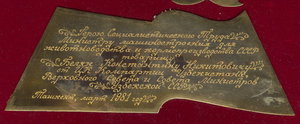 Герою Социалистического Труда
Министру машиностроения для
животноводства и кормопроизводства СССР
товарищу
Беляк Константину Никитовичу
от ЦК Компартии Узбекистана,
Верховного Совета и Совета Министров
Узбекской ССР
Ташкент, март 1981 год